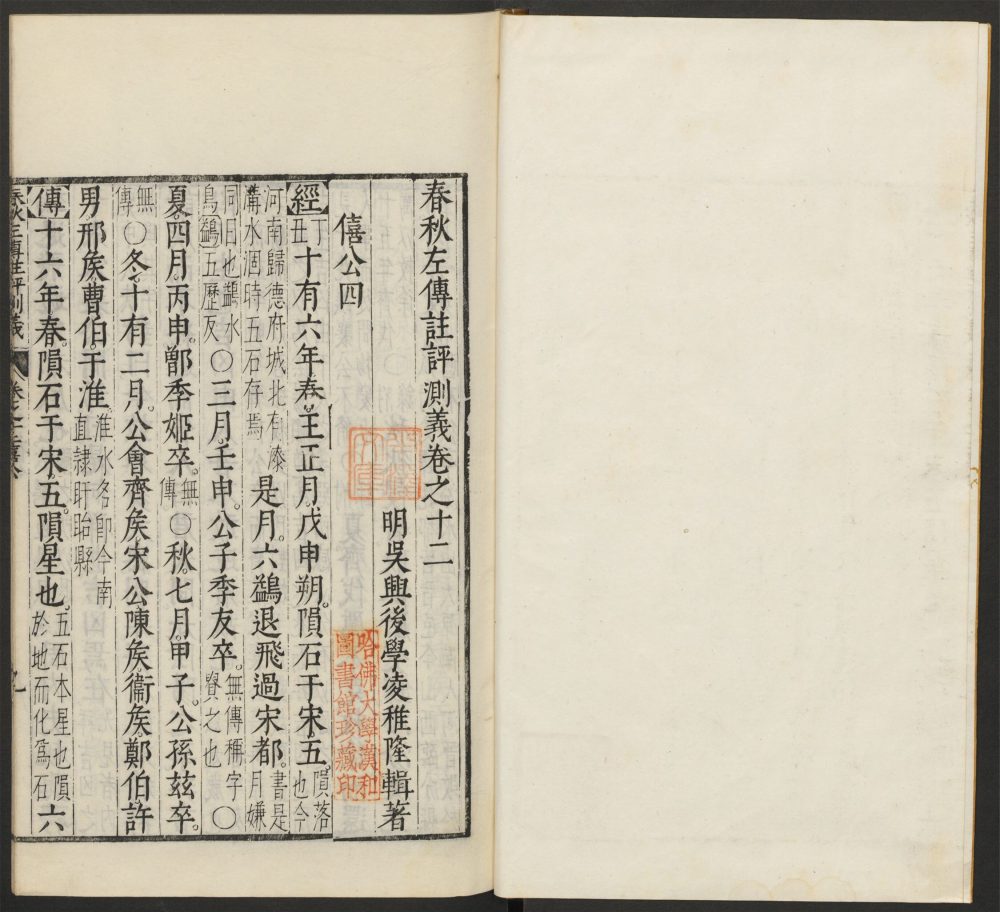 春秋左傳註評測義卷之十二
明吳興後學凌稚隆輯著
僖公四
經丁丑十有六年春王正月戊申朔隕石于宋五隕落也今
河南歸德府城北有漆溝水涸時五石存焉是月六鷁退飛過宋都書是月嫌
同日也鷁水鳥鷁五歷反〇三月壬申公子季友卒無傳稱字寶之也〇
夏四月丙申鄫季姬卒無傳〇秋七月甲子公孫茲卒
無傳〇冬十有二月公會齊矦宋公陳矦衞矦鄭伯許
男邢矦曹伯于淮淮水名卽今南直隸盱眙縣
傳十六年春隕石于宋五隕星也五石本星也隕於地而化爲石六
春秋左傳註評測義
哈佛大學漢和圖書館珍藏印